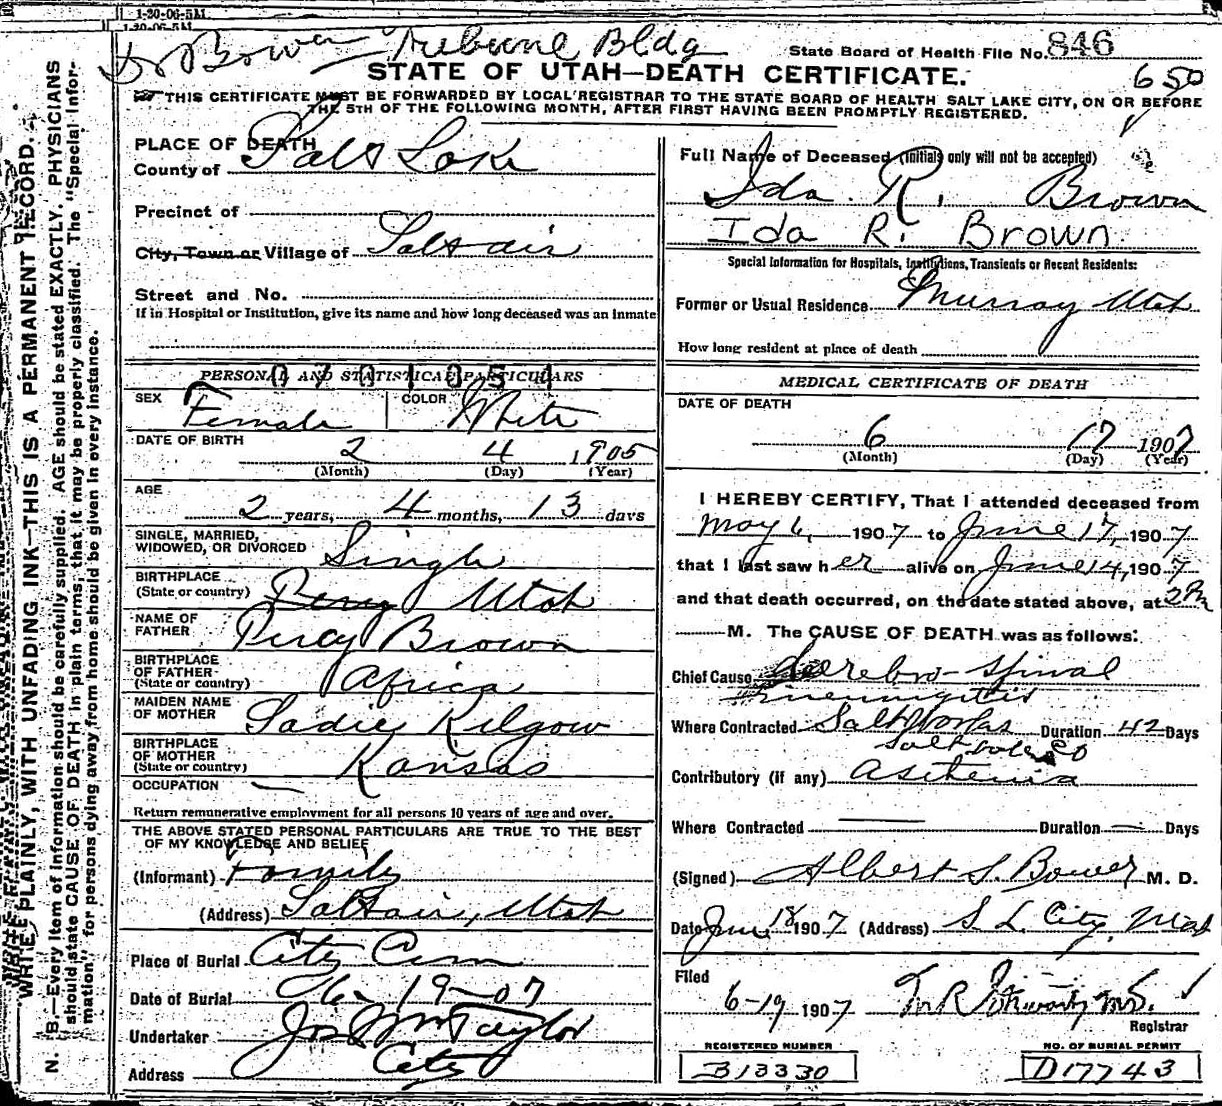 1-20-06-5M
1-20-06-5M
Dr Bower Tribune Bldg
State Board of Health File No. 846
STATE OF UTAH—DEATH CERTIFICATE.
650
THIS CERTIFICATE MUST BE FORWARDED BY LOCAL REGISTRAR TO THE STATE BOARD OF HEALTH SALT LAKE CITY, ON OR BEFORE
THE 5TH OF THE FOLLOWING MONTH, AFTER FIRST HAVING BEEN PROMPTLY REGISTERED.
WRITE PLAINLY, WITH UNFADING INK—THIS IS A PERMANENT RECORD.
N. B.—Every item of information should be carefully supplied. AGE should be stated EXACTLY. PHYSICIANS
should state CAUSE OF DEATH in plain terms, that it may be properly classified. The "Special Infor-
mation" for persons dying away from home should be given in every instance.
PLACE OF DEATH
County of Salt Lake
Precinct of
City, Town or Village of Saltair
Street and No.
If in Hospital or Institution, give its name and how long deceased was an inmate
0701051
PERSONAL AND STATISTICAL PARTICULARS
SEX Female COLOR White
DATE OF BIRTH
2 4 1905
(Month) (Day) (Year)
AGE
2 years, 4 months, 13 days
SINGLE, MARRIED,
WIDOWED, OR DIVORCED Single
BIRTHPLACE
(State or country) Percy Utah
NAME OF
FATHER Percy Brown
BIRTHPLACE
OF FATHER
(State or country) Africa
MAIDEN NAME
OF MOTHER Sadie Kilgow
BIRTHPLACE
OF MOTHER
(State or country) Kansas
OCCUPATION —
Return remunerative employment for all persons 10 years of age and over.
THE ABOVE STATED PERSONAL PARTICULARS ARE TRUE TO THE BEST
OF MY KNOWLEDGE AND BELIEF
(Informant) Family
(Address) Saltair, Utah
Place of Burial City Cem
Date of Burial 6-19-07
Undertaker Jos Wm Taylor
Address City
Full Name of Deceased (Initials only will not be accepted)
Ida R. Brown
Ida R. Brown
Special Information for Hospitals, Institutions, Transients or Recent Residents:
Former or Usual Residence Murray Utah
How long resident at place of death
MEDICAL CERTIFICATE OF DEATH
DATE OF DEATH
6 17 1907
(Month) (Day) (Year)
I HEREBY CERTIFY, That I attended deceased from
May 6, 1907 to June 17, 1907
that I last saw her alive on June 14, 1907
and that death occurred, on the date stated above, at 2 Pm
M. The CAUSE OF DEATH was as follows:
Chief Cause Cerebro-Spinal
meningitis
Where Contracted Salt Works Duration 42 Days
Salt Lake Co
Contributory (if any) Asthenia
Where Contracted — Duration — Days
(Signed) Albert S. Bower M. D.
Date June 18 1907 (Address) S. L. City, Utah
Filed
6-19 1907
Registrar
REGISTERED NUMBER
B13330
NO. OF BURIAL PERMIT
D17743